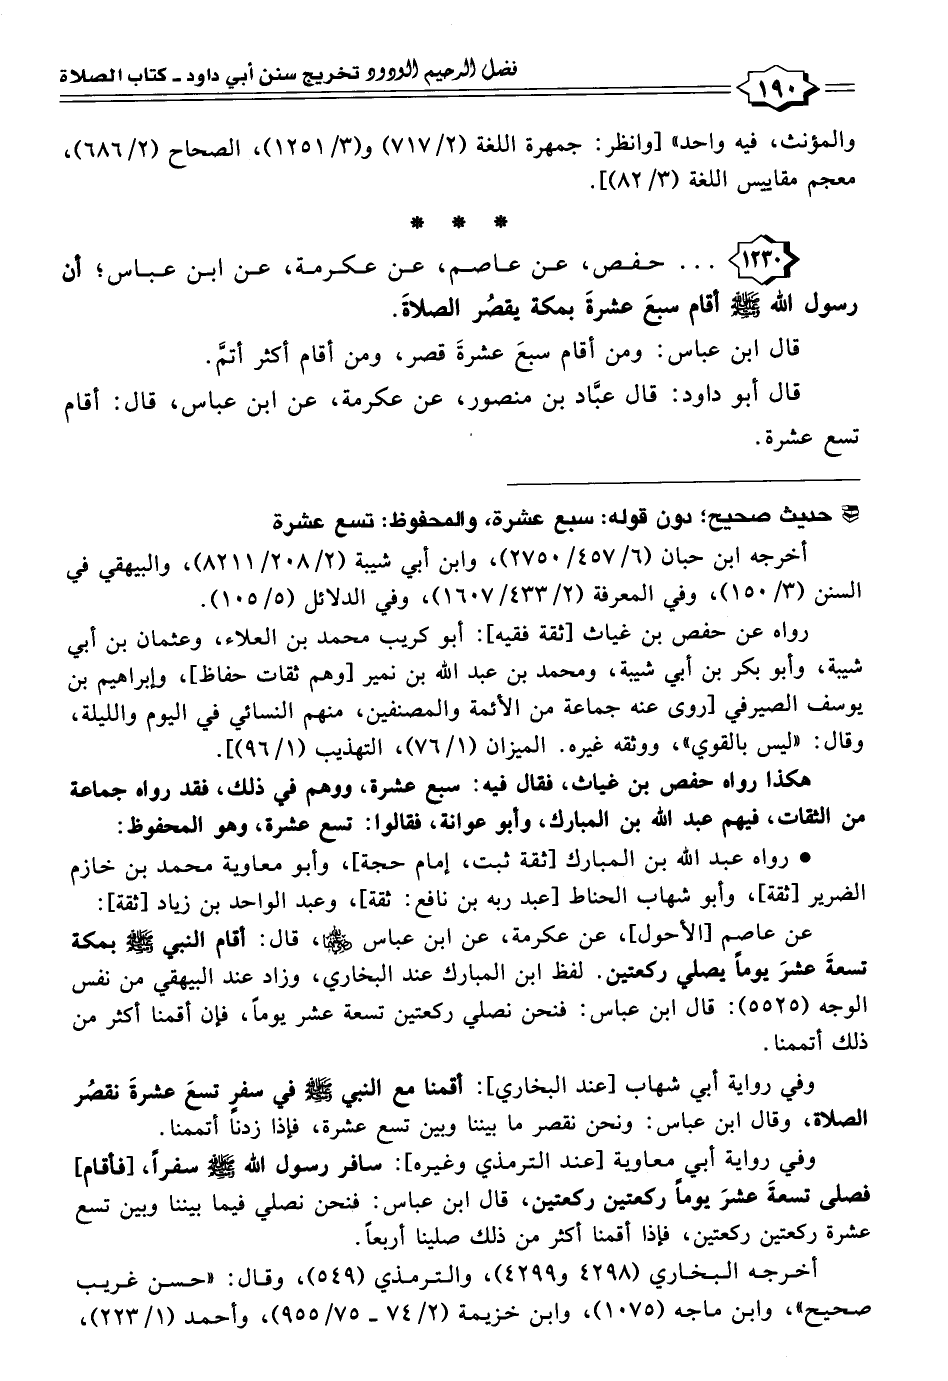 ١٩٠
فضل الرحيم الودود تخريج سنن أبي داود ـ كتاب الصلاة
والمؤنث، فيه واحد» [وانظر: جمهرة اللغة (٢/ ٧١٧) و(٣/ ١٢٥١)، الصحاح (٢/ ٦٨٦)،
معجم مقاييس اللغة (٣/ ٨٢)].
* * *
١٢٣٠ ... حفص، عن عاصم، عن عكرمة، عن ابن عباس؛ أن
رسول الله ﷺ أقام سبعَ عشرةَ بمكة يقصُر الصلاةَ.
قال ابن عباس: ومن أقام سبعَ عشرةَ قصر، ومن أقام أكثر أتمَّ.
قال أبو داود: قال عبَّاد بن منصور، عن عكرمة، عن ابن عباس، قال: أقام
تسع عشرة.
حديث صحيح؛ دون قوله: سبع عشرة، والمحفوظ: تسع عشرة
أخرجه ابن حبان (٦/ ٤٥٧/ ٢٧٥٠)، وابن أبي شيبة (٢/ ٢٠٨/ ٨٢١١)، والبيهقي في
السنن (٣/ ١٥٠)، وفي المعرفة (٢/ ٤٣٣/ ١٦٠٧)، وفي الدلائل (٥/ ١٠٥).
رواه عن حفص بن غياث [ثقة فقيه]: أبو كريب محمد بن العلاء، وعثمان بن أبي
شيبة، وأبو بكر بن أبي شيبة، ومحمد بن عبد الله بن نمير [وهم ثقات حفاظ]، وإبراهيم بن
يوسف الصيرفي [روى عنه جماعة من الأئمة والمصنفين، منهم النسائي في اليوم والليلة،
وقال: «ليس بالقوي»، ووثقه غيره. الميزان (١/ ٧٦)، التهذيب (١/ ٩٦)].
هكذا رواه حفص بن غياث، فقال فيه: سبع عشرة، ووهم في ذلك، فقد رواه جماعة
من الثقات، فيهم عبد الله بن المبارك، وأبو عوانة، فقالوا: تسع عشرة، وهو المحفوظ:
• رواه عبد الله بن المبارك [ثقة ثبت، إمام حجة]، وأبو معاوية محمد بن خازم
الضرير [ثقة]، وأبو شهاب الحناط [عبد ربه بن نافع: ثقة]، وعبد الواحد بن زياد [ثقة]:
عن عاصم [الأحول]، عن عكرمة، عن ابن عباس ﵄، قال: أقام النبي ﷺ بمكة
تسعةَ عشرَ يوماً يصلي ركعتين. لفظ ابن المبارك عند البخاري، وزاد عند البيهقي من نفس
الوجه (٥٥٢٥): قال ابن عباس: فنحن نصلي ركعتين تسعة عشر يوماً، فإن أقمنا أكثر من
ذلك أتممنا.
وفي رواية أبي شهاب [عند البخاري]: أقمنا مع النبي ﷺ في سفرٍ تسعَ عشرةَ نقصُر
الصلاة، وقال ابن عباس: ونحن نقصر ما بيننا وبين تسع عشرة، فإذا زدناً أتممنا.
وفي رواية أبي معاوية [عند الترمذي وغيره]: سافر رسول الله ﷺ سفراً، [فأقام]
فصلى تسعةَ عشرَ يوماً ركعتين ركعتين، قال ابن عباس: فنحن نصلي فيما بيننا وبين تسع
عشرة ركعتين ركعتين، فإذا أقمنا أكثر من ذلك صلينا أربعاً.
أخرجه البخاري (٤٢٩٨ و٤٢٩٩)، والترمذي (٥٤٩)، وقال: «حسن غريب
صحيح»، وابن ماجه (١٠٧٥)، وابن خزيمة (٢/ ٧٤ ـ ٧٥/ ٩٥٥)، وأحمد (١/ ٢٢٣)،